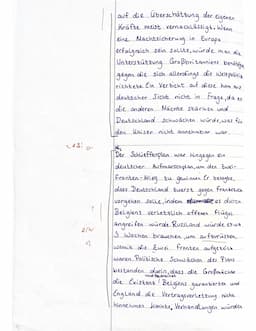 auf die Überschätzung der eigenen
Kräfte meist vernachlässigt. Wenn
eine Machtsicherung in Europa
erfolgreich sein sollte, würde man die
Unterstützung Großbritanniens benötigen
gegen die sich allerdings die Weltpolitik
richtete. Ein Verzicht auf diese kam aus
deutscher Sicht nicht in Frage, da es
die anderen Mächte stärken und
Deutschland schwächen würde, was für
den Kaiser nicht annehmbar war.
Der Schlieffenplan war hingegen ein
deutscher Aufmarschplan, um den Zwei-
Fronten-Krieg zu gewinnen. Er besagte,
dass Deutschland zuerst gegen Frankreich
vorgehen solle, indem es durch
Belgiens verletzlich offene Flügel
angreifen würde. Russland würde etwa
3 Wochen brauchen, um aufzurüsten,
womit die zwei Fronten aufgeteilt
wären. Politische Schwächen des Plans
bestanden darin, dass die Großmächte
die Existenz Belgiens garantierten und
England die Vertragsverletzung nicht
hinnehmen könnte. Verhandlungen würden